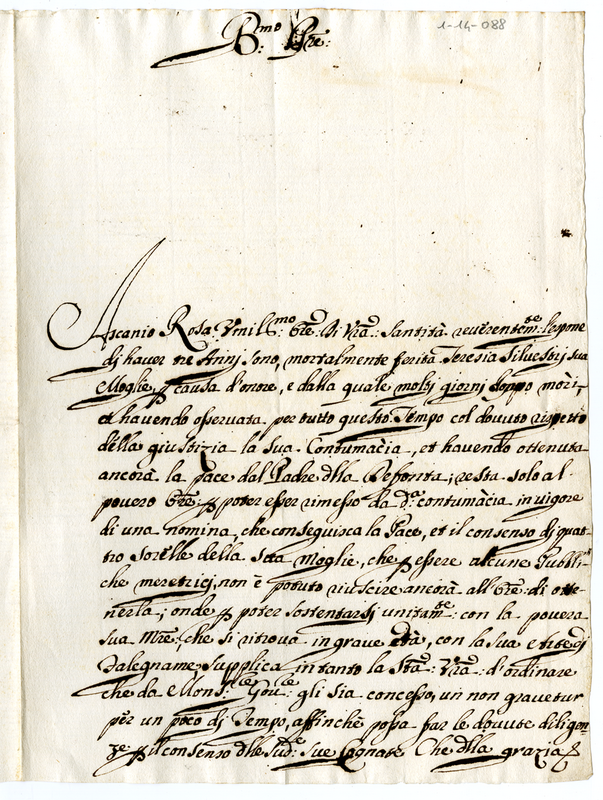 1-14-088
B.mo P̄re:
Ascanio Rosa Umil.mo Ore: di Vrã: Santità reverentem.te l'espone
di haver tre Annj sono, mortalmente ferita Teresia Silvestrj sua
Moglie, p causa d'onore, e dalla quale moltj giornj doppo morì,
et havendo osservata per tutto questo Tempo col dovuto rispetto
della giustizia la sua Contumacia, et havendo ottenuta
ancora la pace dal Padre dlla Defonta; resta solo al
povero Ore: p poter esser rimesso da d.a contumacia in vigore
di una nomina, che conseguisca la Pace, et il consenso dj quat-
tro sorelle della sua moglie, che p essere alcune Pubbli-
che meretricj, non è potuto riuscire ancora all'Ore: di otte-
nerla; onde p poter sostentarsj unitam.te con la povera
sua Mre:, che si ritrova in grave età, con la sua Arte dj
Falegname, supplica intanto la Stã: Vrã: d'ordinare
che da Mons.re Gov.re gli sia concesso, un non gravetur
per un poco dj Tempo, affinchè possa far le dovute diligen-
ze p il consenso dlle sud.e sue Cognate Che dlla grazia &